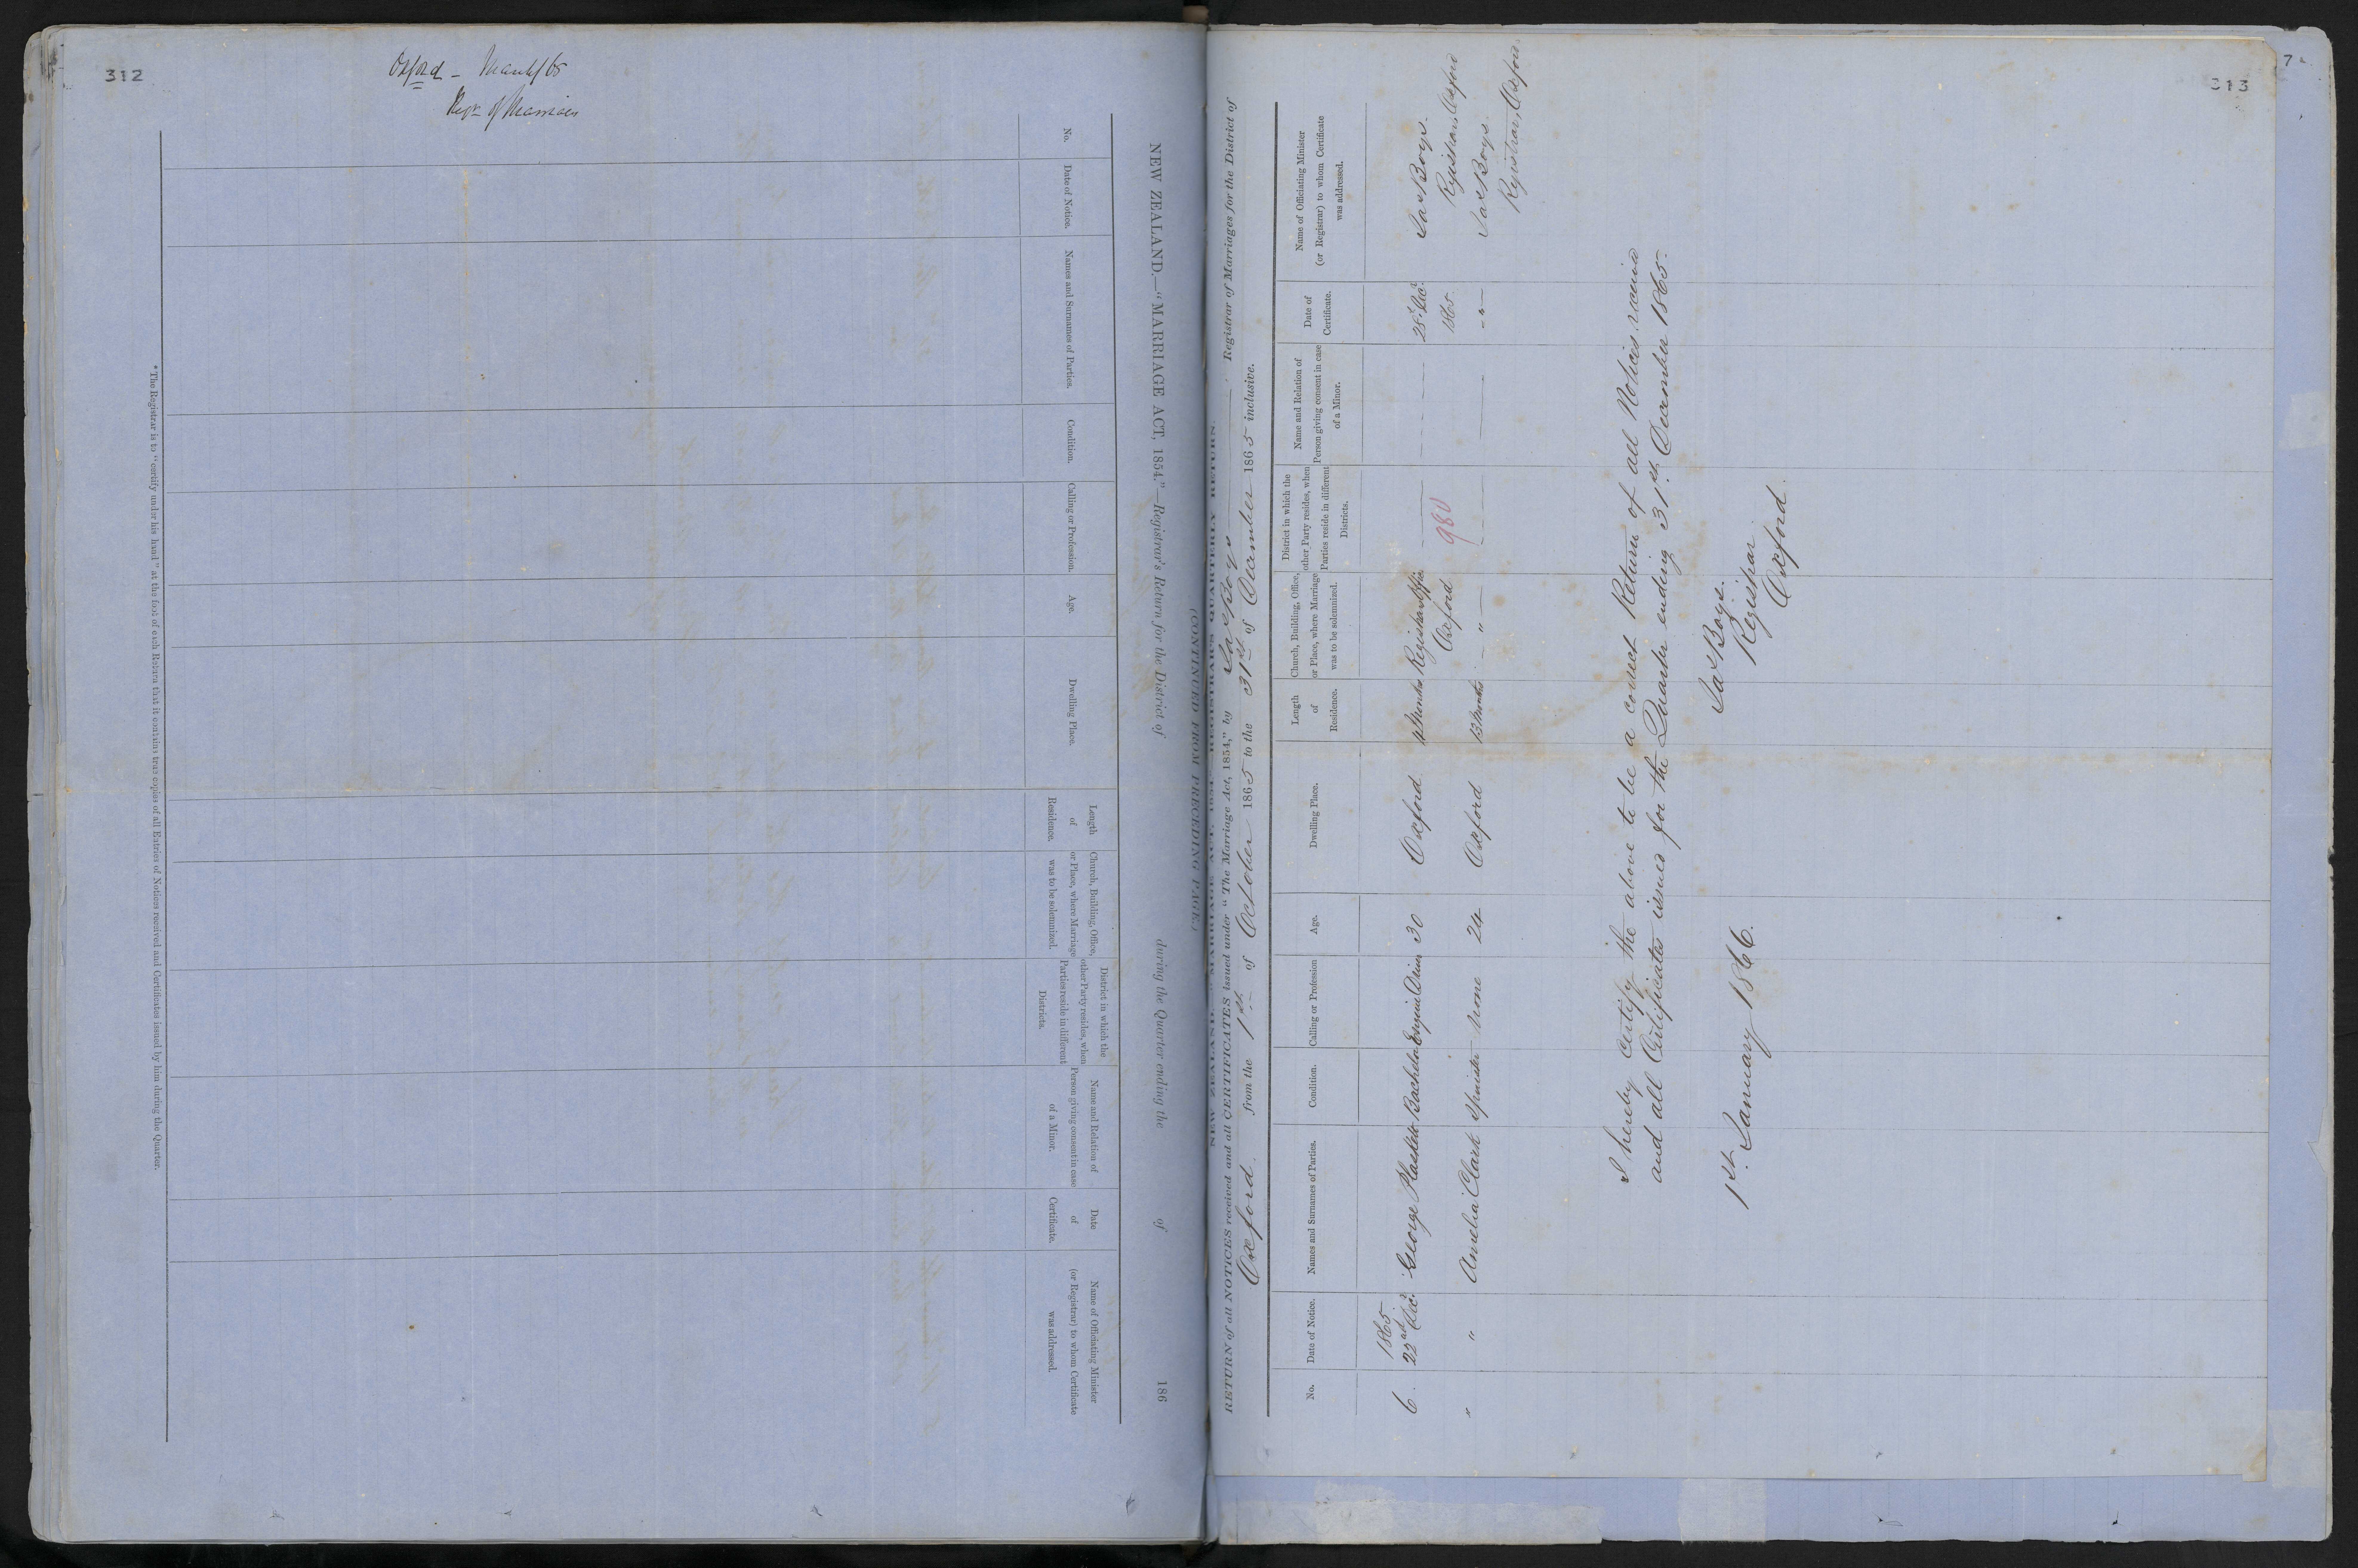 312
Oxford - March/65
Regr of Marriages
NEW ZEALAND.—"MARRIAGE ACT, 1854."—Registrar's Return for the District of during the Quarter ending the of 186
No.
Date of Notice.
Names and Surnames of Parties.
Condition.
Calling or Profession.
Age.
Dwelling Place.
Length
of
Residence.
Church, Building, Office,
or Place, where Marriage
was to be solemnized.
District in which the
other Party resides, when
Parties reside in different
Districts.
Name and Relation of
Person giving consent in case
of a Minor.
Date
of
Certificate.
Name of Officiating Minister
(or Registrar) to whom Certificate
was addressed.
* The Registrar is to "certify under his hand" at the foot of each Return that it contains true copies of all Entries of Notices received and Certificates issued by him during the Quarter.
(CONTINUED FROM PRECEDING PAGE.)
7
313
NEW ZEALAND.—"MARRIAGE ACT, 1854."—REGISTRAR'S QUARTERLY RETURN.
RETURN of all NOTICES received and all CERTIFICATES issued under "The Marriage Act, 1854," by Jas Boys Registrar of Marriages for the District of
Oxford from the 1st of October 1865 to the 31st of December 1865 inclusive.
No.
Date of Notice.
Names and Surnames of Parties.
Condition.
Calling or Profession
Age.
Dwelling Place.
Length
of
Residence.
Church, Building, Office,
or Place, where Marriage
was to be solemnized.
District in which the
other Party resides, when
Parties reside in different
Districts.
Name and Relation of
Person giving consent in case
of a Minor.
Date of
Certificate.
Name of Officiating Minister
(or Registrar) to whom Certificate
was addressed.
1865
6 22nd Dec. George Plaskett Bachelor Engine Driver 30 Oxford 4 Months Registrar Office 28 Dec. Jas Boys.
Oxford 980 1865 Registrar, Oxford
" " Amelia Clark Spinster None 24 Oxford 13 Months — " — — " — Jas Boys.
Registrar, Oxford.
I hereby Certify the above to be a correct Return of all Notices received
and all Certificates issued for the Quarter ending 31st December 1865.
Jas Boys.
1st January 1866. Registrar
Oxford.